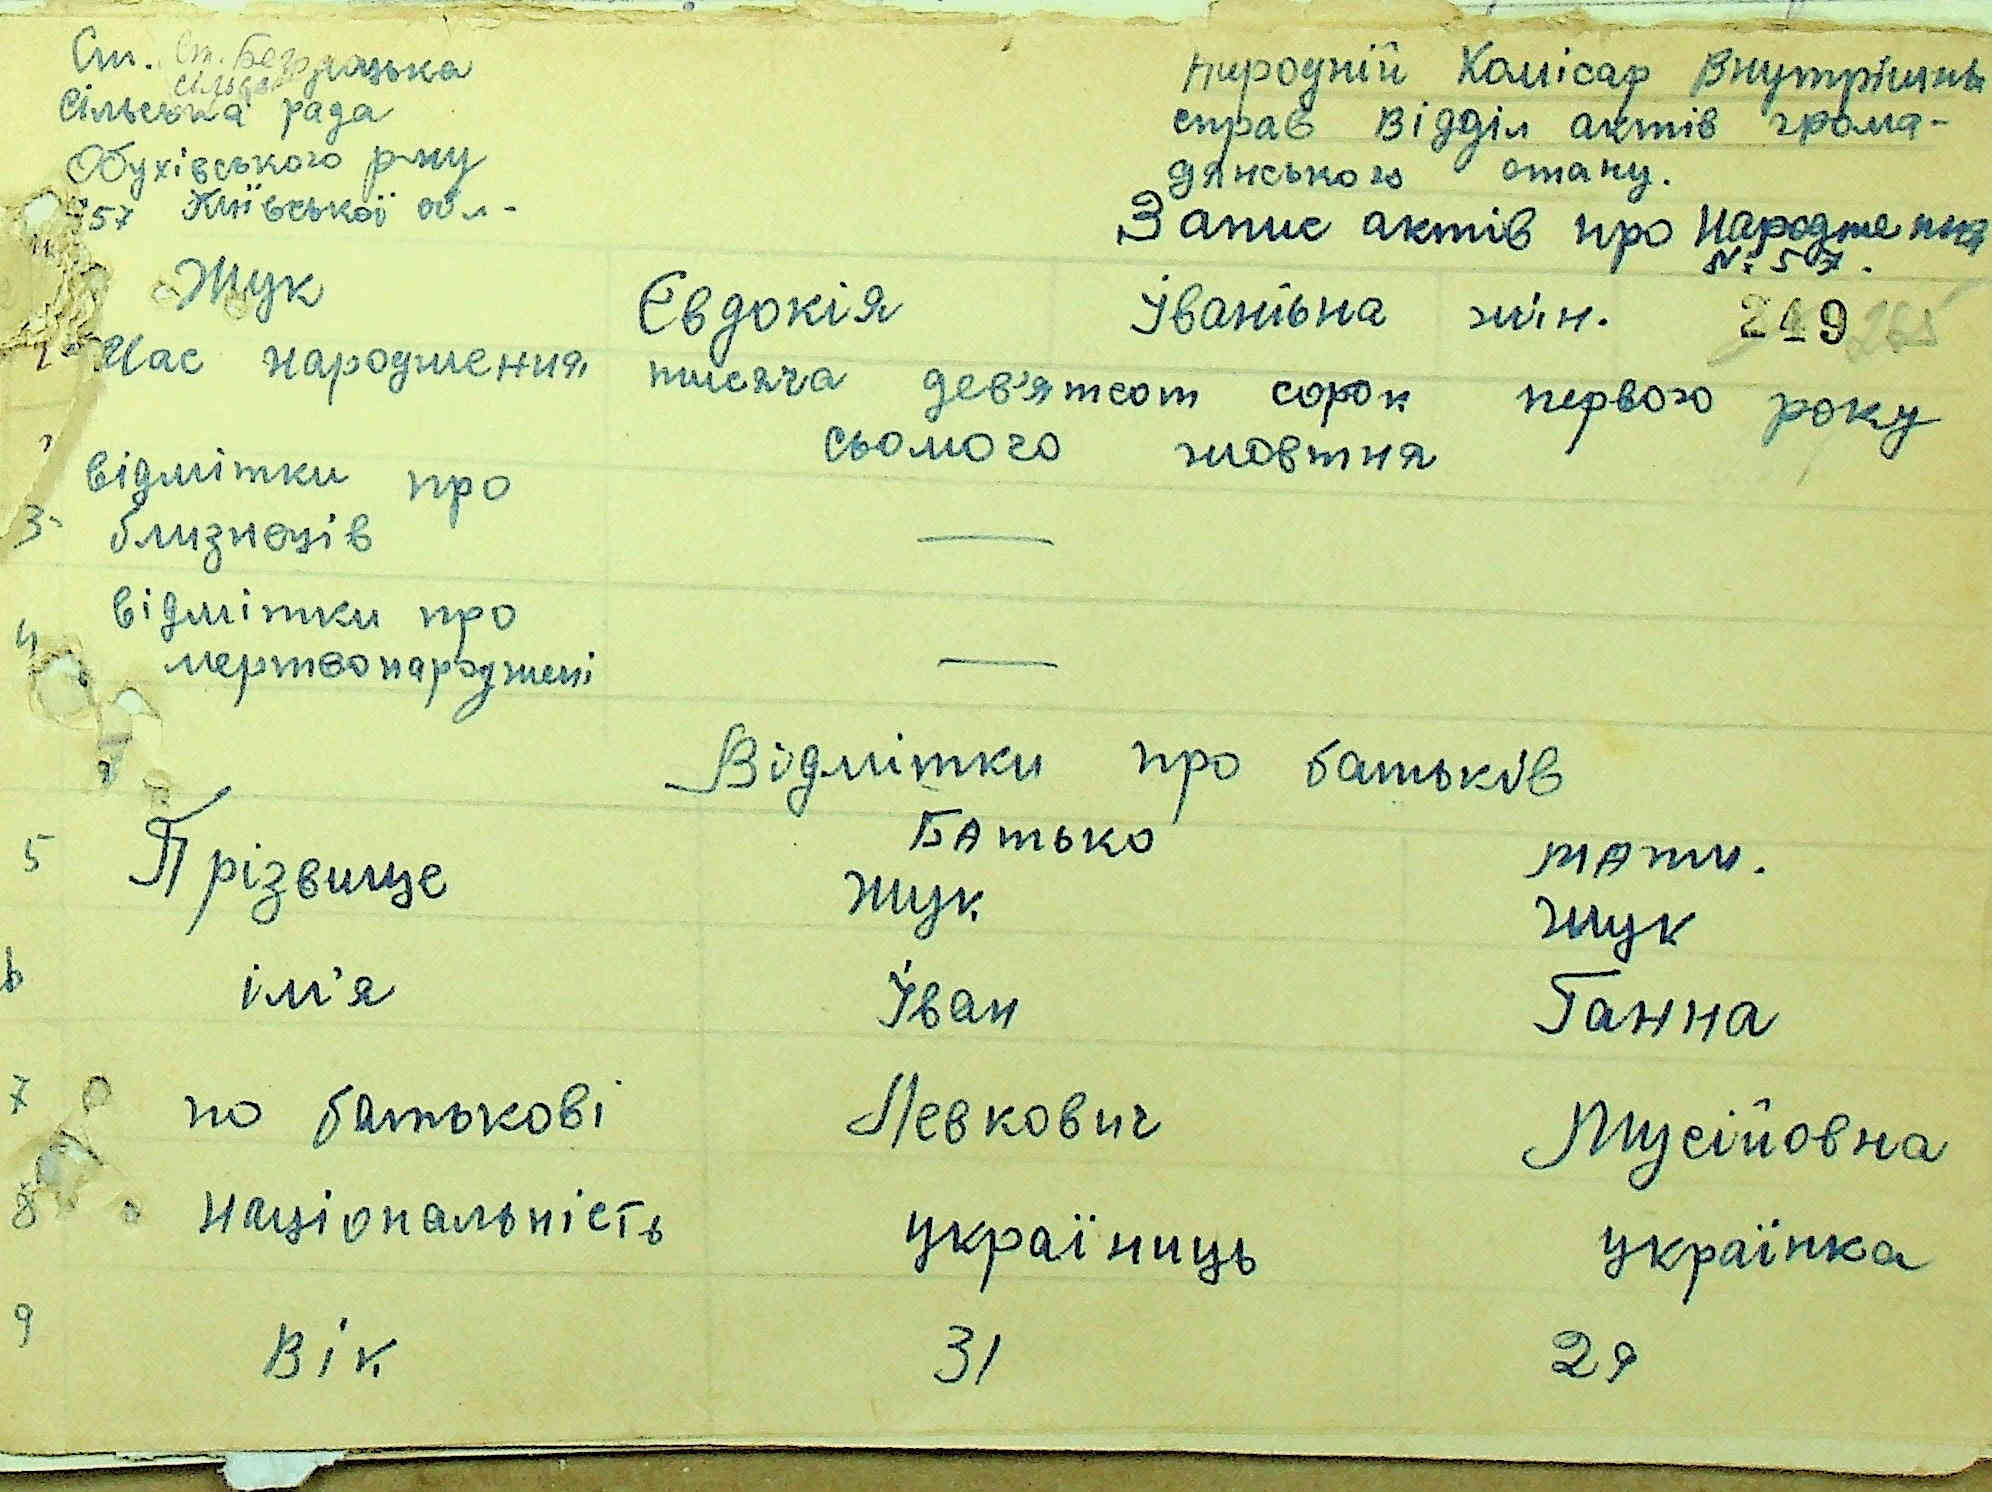 Ст. Безрадицька
сільська рада
Обухівського р-ну
57 Київської обл-
Народній Комісар Внутрішнь
справ Відділ актів грома-
дянського стану.
Запис актів про Народження
№ 57.
Жук Євдокія Іванівна жін. 249 265
Час народження тисяча дев'ятсот сорок первого року
сьомого жовтня
3 відмітки про
близнеців —
4 відмітки про
мертвонароджені —
Відмітки про батьків
Батько мати.
5 Прізвище Жук Жук
6 ім'я Іван Ганна
7 по батькові Левкович Мусійовна
8 національність україниць українка
9 Вік 31 29